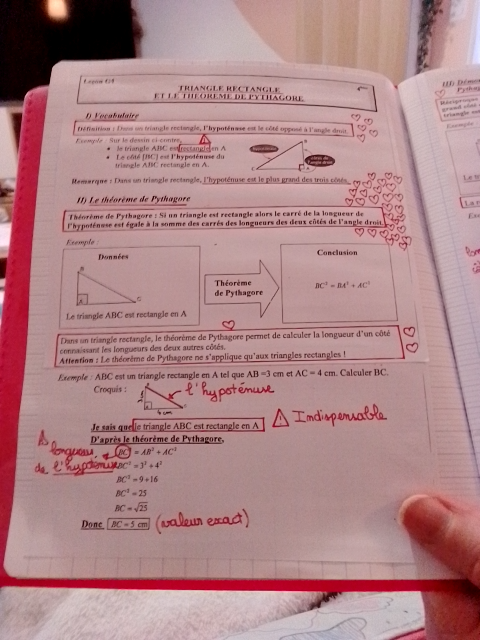 Leçon G1
TRIANGLE RECTANGLE
ET LE THEOREME DE PYTHAGORE
I) Vocabulaire
Définition : Dans un triangle rectangle, l'hypoténuse est le côté opposé à l'angle droit.
Exemple : Sur le dessin ci-contre,
• le triangle ABC est rectangle en A
• Le côté [BC] est l'hypoténuse du
triangle ABC rectangle en A.
Remarque : Dans un triangle rectangle, l'hypoténuse est le plus grand des trois côtés.
II) Le théorème de Pythagore
Théorème de Pythagore : Si un triangle est rectangle alors le carré de la longueur de
l'hypoténuse est égale à la somme des carrés des longueurs des deux côtés de l'angle droit.
Exemple :
Données
B
A
C
Le triangle ABC est rectangle en A
Théorème
de Pythagore
Conclusion
BC² = BA² + AC²
Dans un triangle rectangle, le théorème de Pythagore permet de calculer la longueur d'un côté
connaissant les longueurs des deux autres côtés.
Attention : Le théorème de Pythagore ne s'applique qu'aux triangles rectangles !
Exemple : ABC est un triangle rectangle en A tel que AB =3 cm et AC = 4 cm. Calculer BC.
Croquis :
l'hypoténuse
4 cm
Je sais que le triangle ABC est rectangle en A
Indispensable
D'après le théorème de Pythagore,
longueur
de l'hypoténuse
BC² = AB² + AC²
BC² = 3² + 4²
BC² = 9+16
BC² = 25
BC = √25
Donc BC = 5 cm (valeur exact)
III)